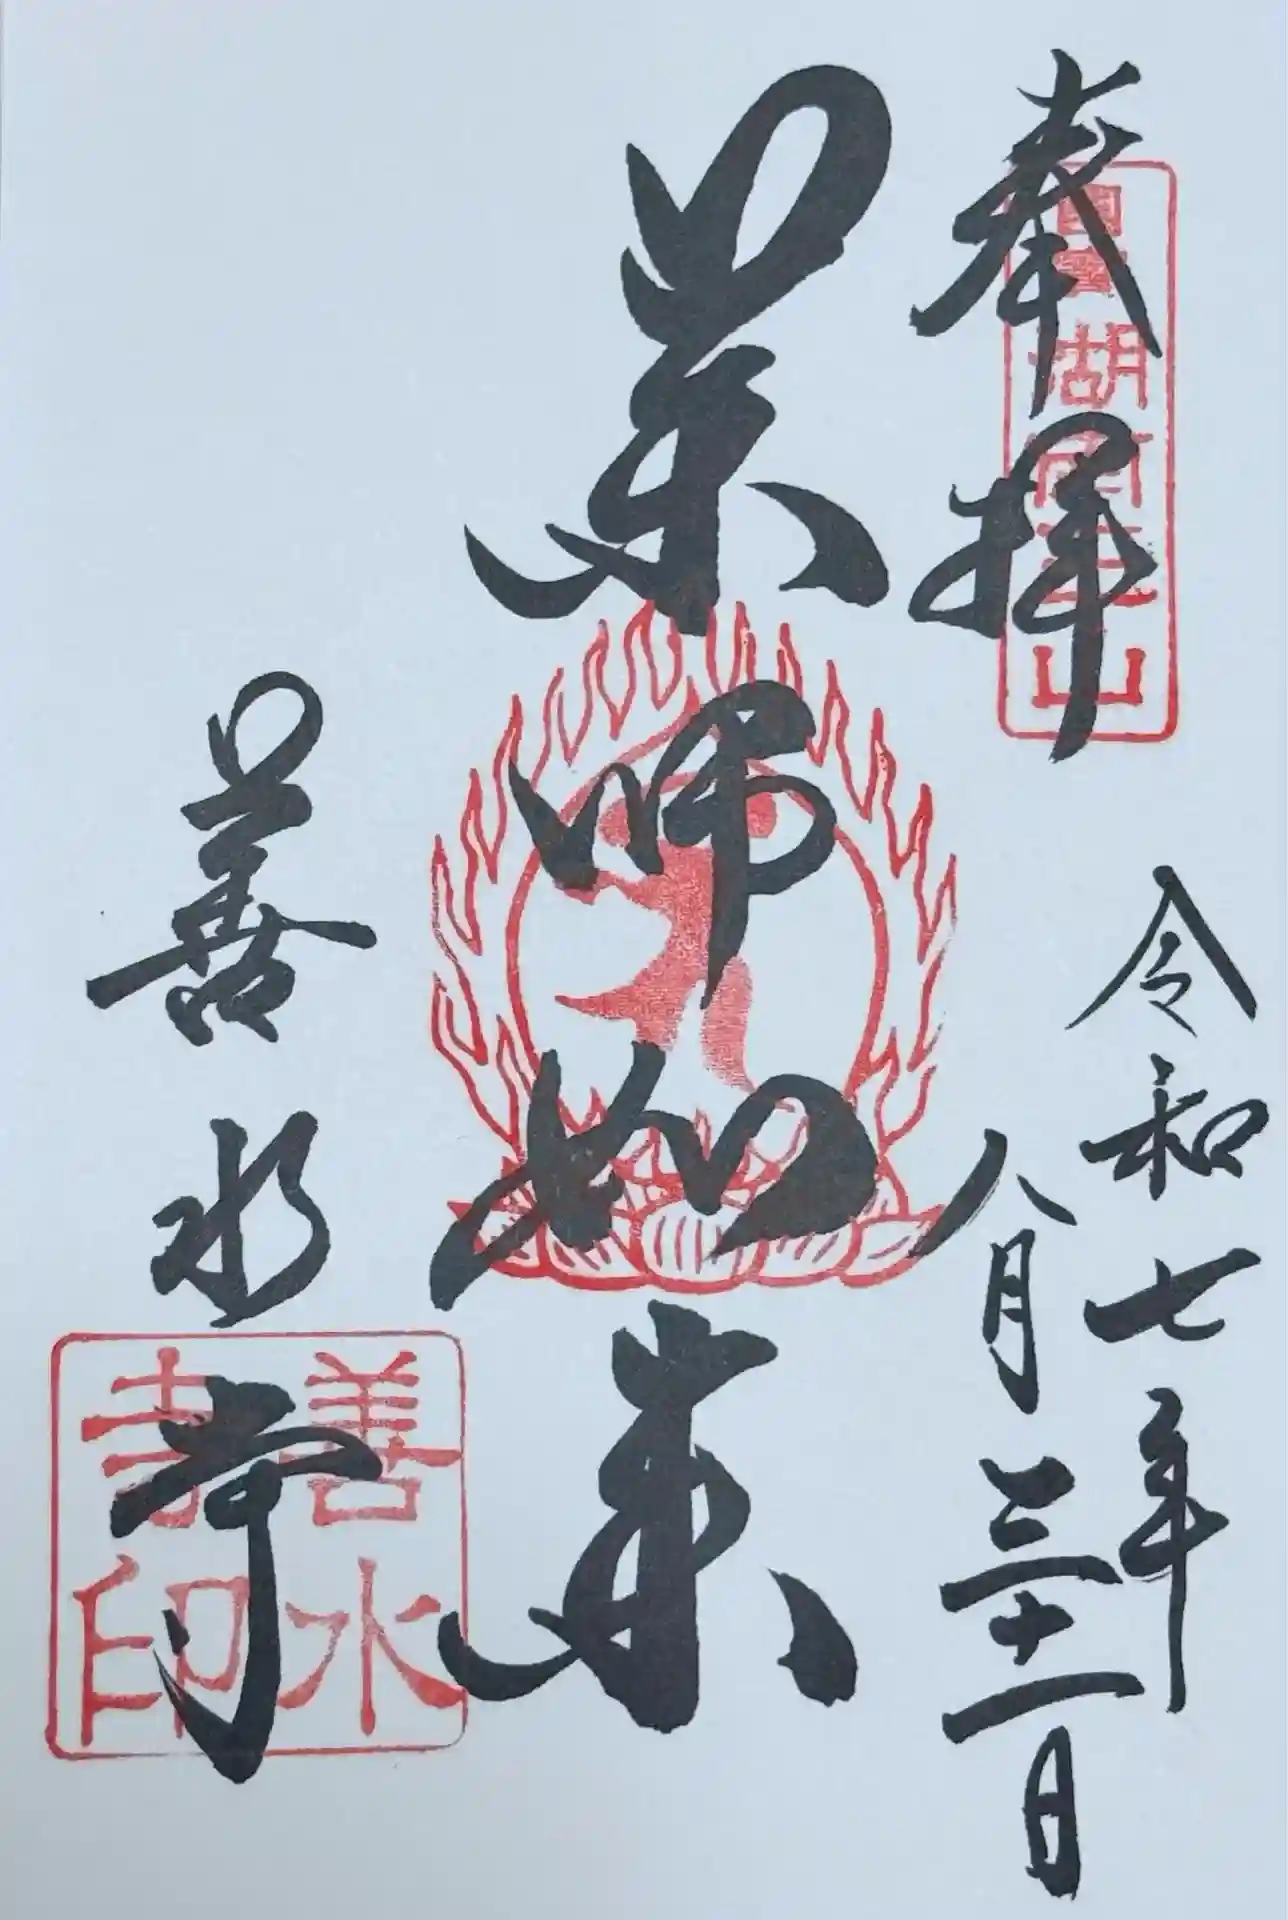 奉拝
国宝 湖南三山
令和七年
八月三十一日
薬師如来
善水寺
善水
寺印